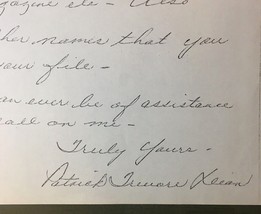 gazine etc - Also
other names that you
your file -
can ever be of assistance
call on me -
Truly Yours -
Patrick Trevore